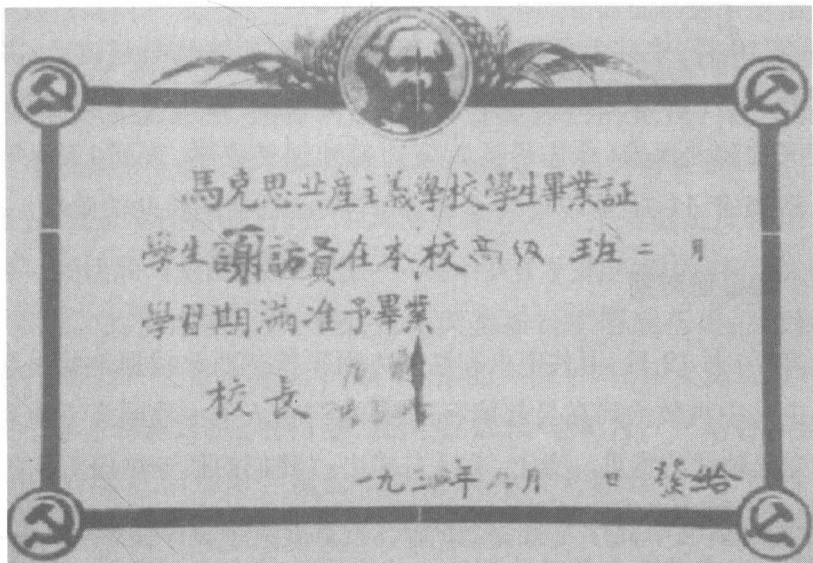 馬克思共產主義學校學生畢業証
學生謝訪貴在本校高級 班二 月
學習期滿准予畢業
校長
一九三 年 月 日 發給